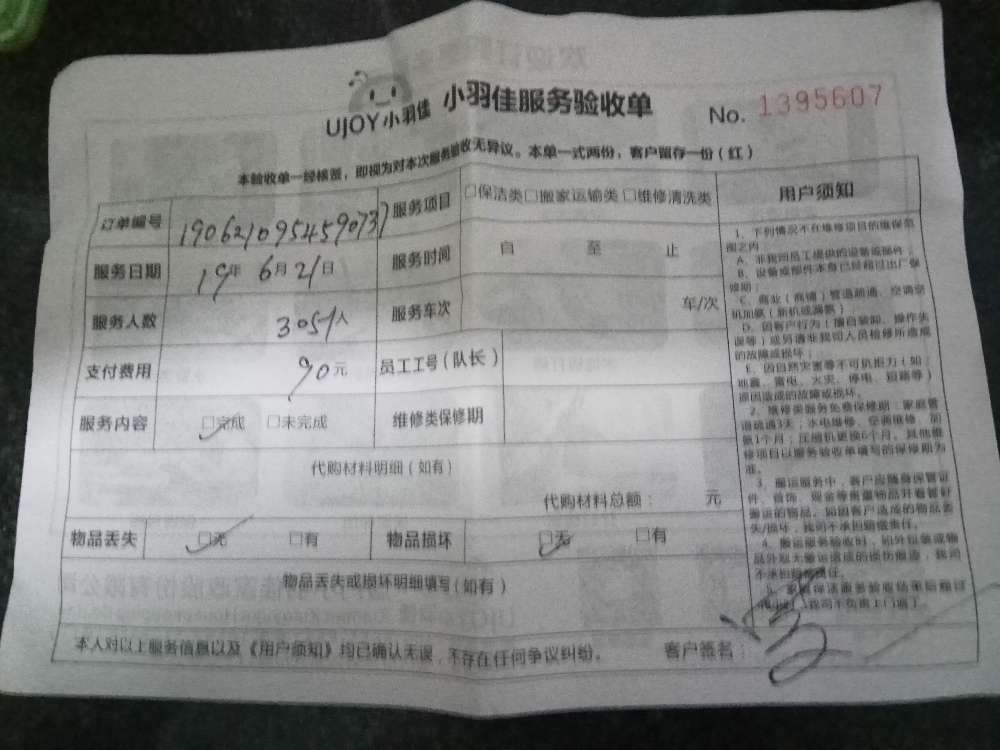 UJOY小羽佳 小羽佳服务验收单 No. 1395607
本验收单一经核盖，即视为对本次服务验收无异议。本单一式两份，客户留存一份（红）
订单编号 190621095459073 服务项目 □保洁类□搬家运输类 □维修清洗类
服务日期 19年 6月21日 服务时间 自 至 止
服务人数 3051人 服务车次 车/次
支付费用 90元 员工工号（队长）
服务内容 □完成 □未完成 维修类保修期
代购材料明细（如有）
代购材料总额： 元
物品丢失 □无 □有 物品损坏 □无 □有
物品丢失或损坏明细填写（如有）
本人对以上服务信息以及《用户须知》均已确认无误，不存在任何争议纠纷。 客户签名：
用户须知
1、下列情况不在维修项目的维保范
围之内：
A、非我司员工提供的设备或部件；
B、设备或部件本身已经超过出厂保
修期；
C、商业（商铺）管道疏通、空调空
机加氨（新机或漏氨）
D、因客户行为（擅自装卸、操作失
误等）或另请非我司人员检修所造成
的故障或损坏；
E、因自然灾害等不可抗拒力（如：
地震、雷电、火灾、停电、短路等）
原因造成的故障或损坏。
2、维修类服务免费保修期：家庭管
道疏通3天；水电维修、空调维修、加
氨1个月；压缩机更换6个月。其他维
修项目以服务验收单填写的保修期为
准。
3、搬运服务中，客户应随身保管证
件、首饰、现金等贵重物品并看管好
搬运的物品。如因客户造成的物品丢
失/损坏，我司不承担赔偿责任。
4、搬运服务验收时，如外包装或物
品外观无搬运造成的损伤痕迹，我司
不承担赔偿责任。
5、家庭保洁服务验收结束后超过
我司不负责上门返工。